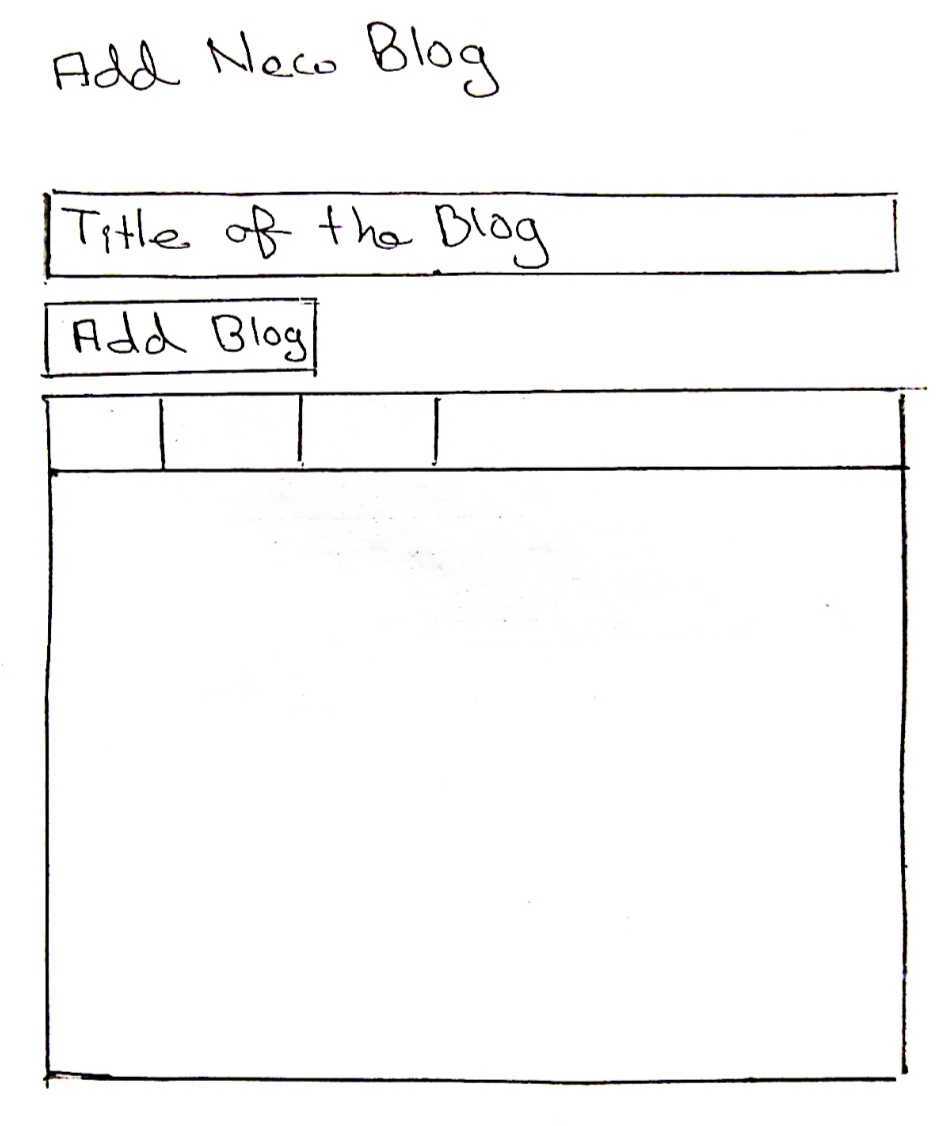 Add New Blog
Title of the Blog
Add Blog